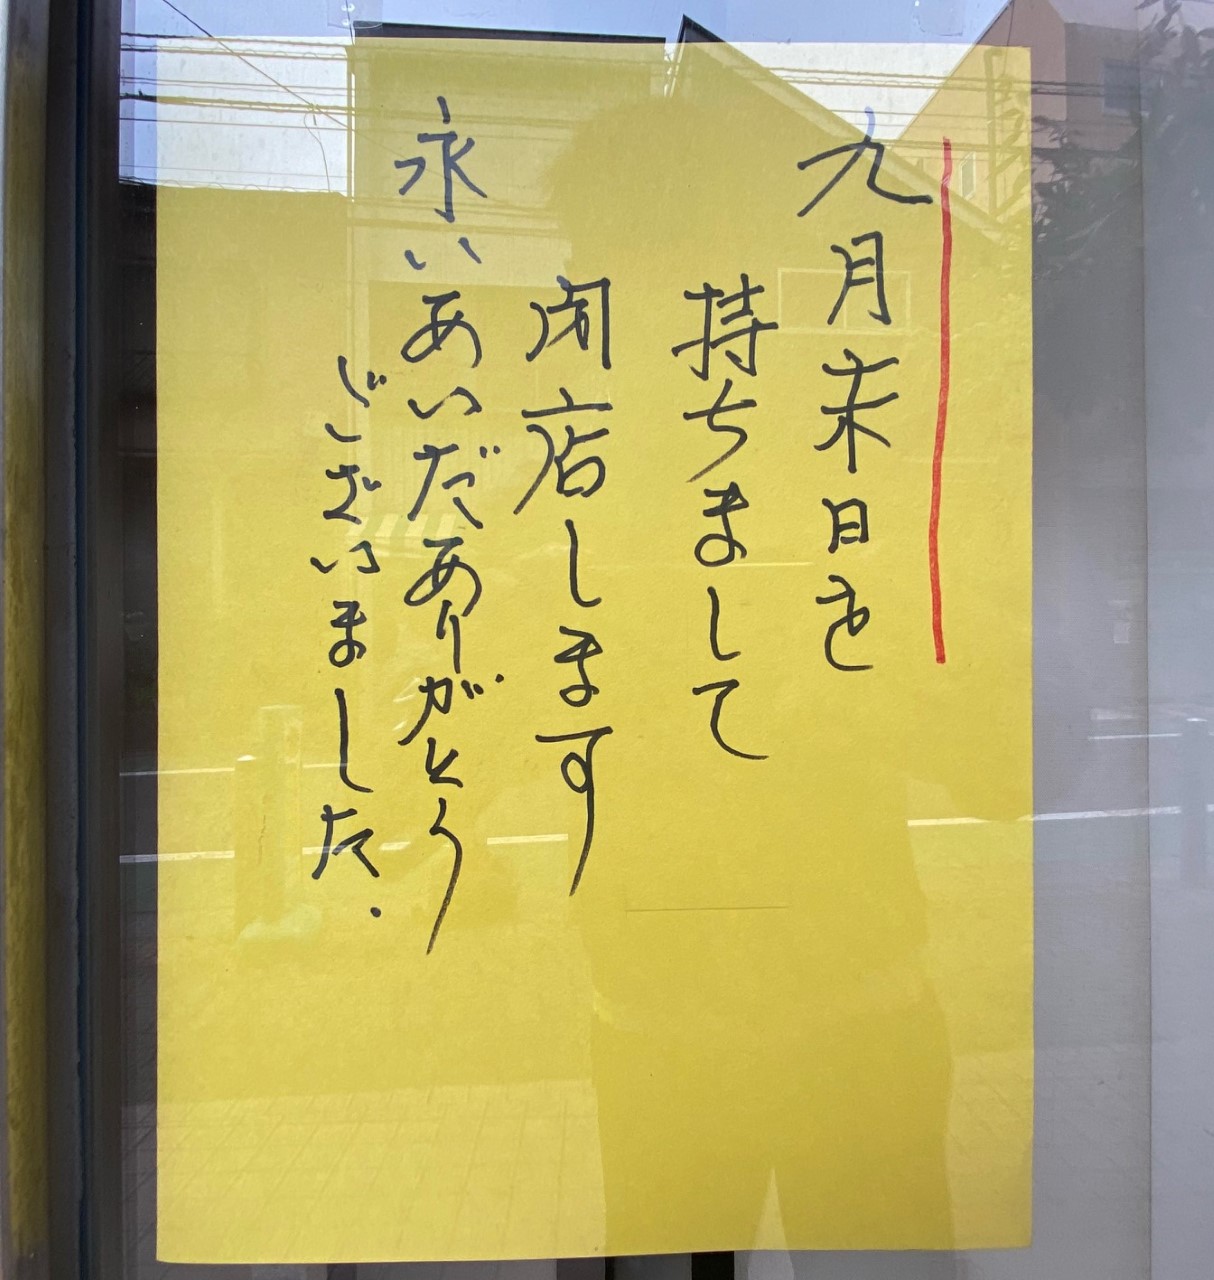 九月末日を
持ちまして
閉店します
永いあいだありがとう
ございました.